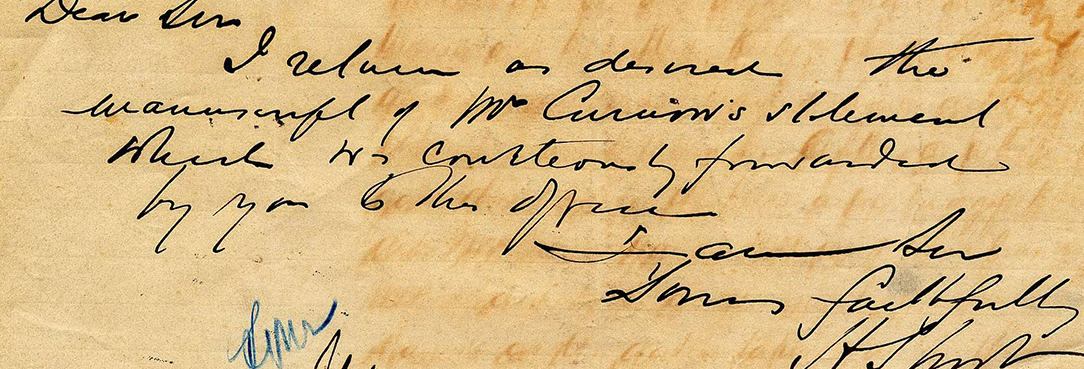 Dear Sir
I return as desired the
manuscript of Mr Curnow's statement
which was courteously forwarded
by you to this Office
I am Sir
Yours faithfully